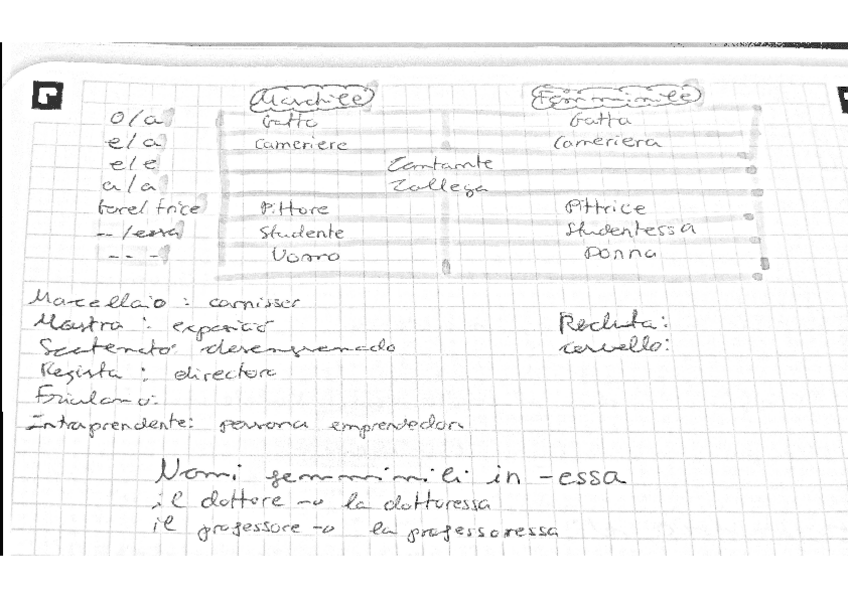 Maschile Femminile
o/a Gatto Gatta
e/a Cameriere Cameriera
e/e Cantante
a/a Collega
tore/trice Pittore Pittrice
--/essa Studente Studentessa
-- - Uomo Donna
Macellaio : carnisser
Mostra : exposició Recluta:
Scatenato: desenfrenado cervello:
Regista : directora
Friulano:
Intraprendente: persona emprendedora
Nomi femminili in -essa
il dottore -o la dottoressa
il professore -o la professoressa